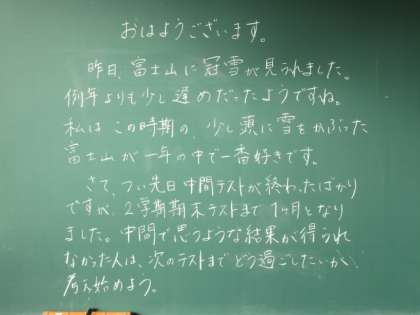 おはようございます。
昨日、富士山に冠雪が見られました。
例年よりも少し遅めだったようですね。
私はこの時期の、少し裏に雪をかぶった
富士山が一年の中で一番好きです。
さて、つい先日中間テストが終わったばかり
ですが、2学期期末テストまで1ヶ月となり
ました。中間で思うような結果が得られ
なかった人は、次のテストまでどう過ごしたいか
考え始めよう。